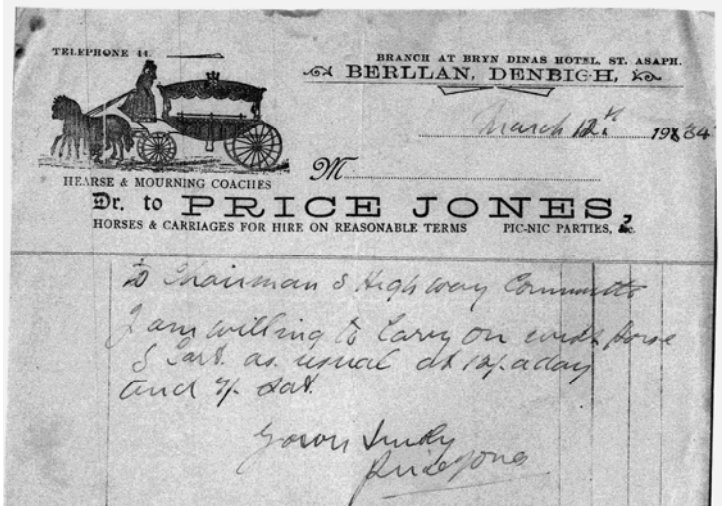 TELEPHONE 44.
BRANCH AT BRYN DINAS HOTEL, ST. ASAPH.
BERLLAN, DENBIGH,
March 12th 1934
M
HEARSE & MOURNING COACHES
Dr. to PRICE JONES,
HORSES & CARRIAGES FOR HIRE ON REASONABLE TERMS PIC-NIC PARTIES, &c.
to Chairman & High way Committe
I am willing to Carry on with Horse
& Cart. as usual at 12/. a day
and 7/. Sat.
Yours truly
Price Jones